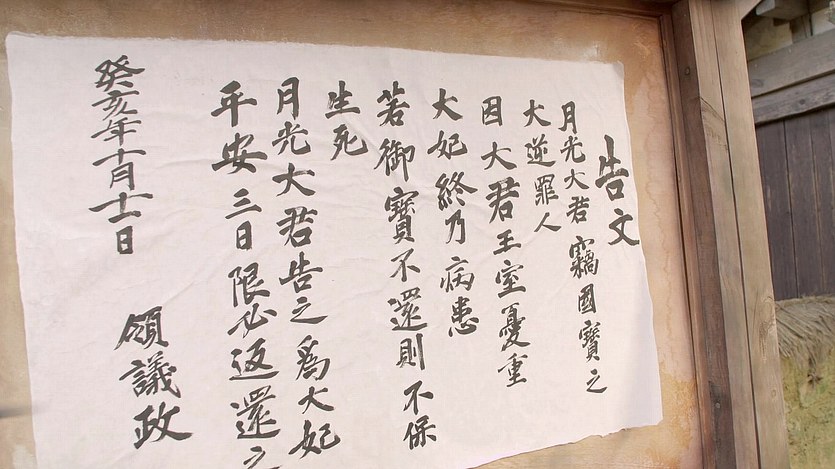 告文
月光大君竊國寶之
大逆罪人
因大君王室憂重
大妃終乃病患
若御寶不還則不保
生死
月光大君告之為大妃
平安三日限必返還之
癸亥年十月十一日
領議政